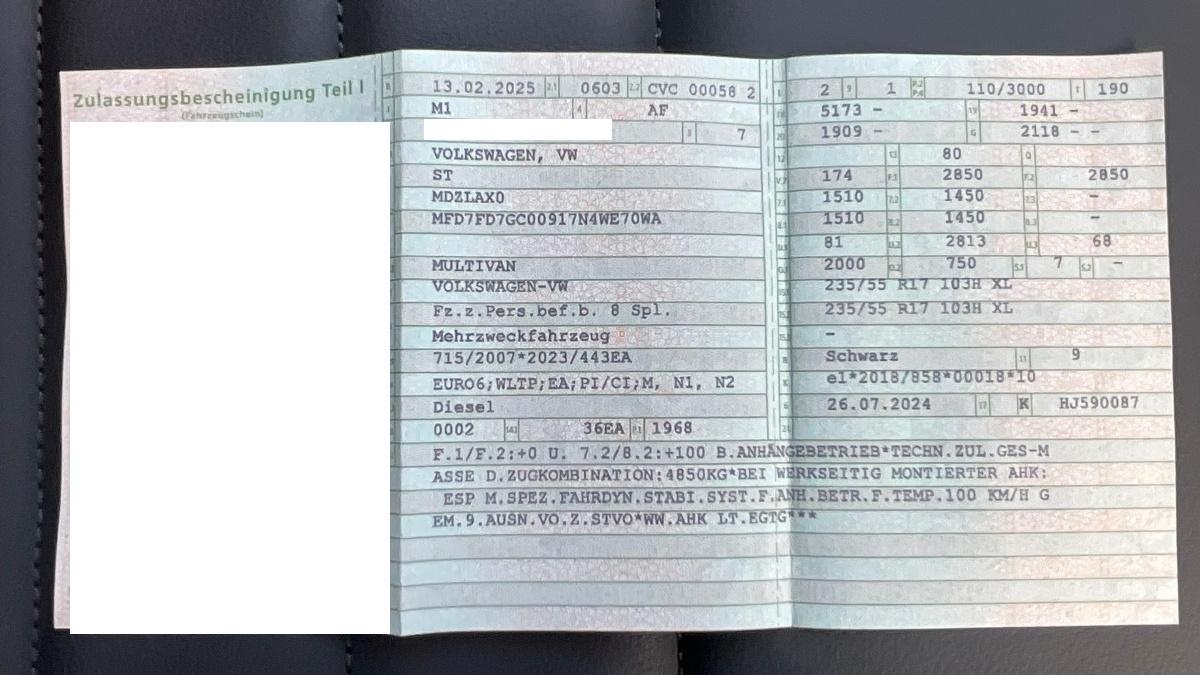 Zulassungsbescheinigung Teil I
(Fahrzeugschein)
13.02.2025 2.1 0603 2.2 CVC 00058 2
M1 4 AF
3 7
VOLKSWAGEN, VW
ST
MDZLAX0
MFD7FD7GC00917N4WE70WA
MULTIVAN
VOLKSWAGEN-VW
Fz.z.Pers.bef.b. 8 Spl.
Mehrzweckfahrzeug
715/2007*2023/443EA
EURO6;WLTP;EA;PI/CI;M, N1, N2
Diesel
0002 14.1 36EA P.1 1968
L 2 9 1 P.2 P.4 110/3000 T 190
18 5173 - 19 1941 -
20 1909 - G 2118 - -
12 13 80 Q
V.7 174 F.1 2850 F.2 2850
7.1 1510 7.2 1450 7.3 -
8.1 1510 8.2 1450 8.3 -
U.1 81 U.2 2813 U.3 68
O.1 2000 O.2 750 S.1 7 S.2 -
235/55 R17 103H XL
235/55 R17 103H XL
-
R Schwarz 11 9
K e1*2018/858*00018*10
6 26.07.2024 17 K HJ590087
21
F.1/F.2:+0 U. 7.2/8.2:+100 B.ANHÄNGEBETRIEB*TECHN.ZUL.GES-M
ASSE D.ZUGKOMBINATION:4850KG*BEI WERKSEITIG MONTIERTER AHK:
ESP M.SPEZ.FAHRDYN.STABI.SYST.F.ANH.BETR.F.TEMP.100 KM/H G
EM.9.AUSN.VO.Z.STVO*WW.AHK LT.EGTG***